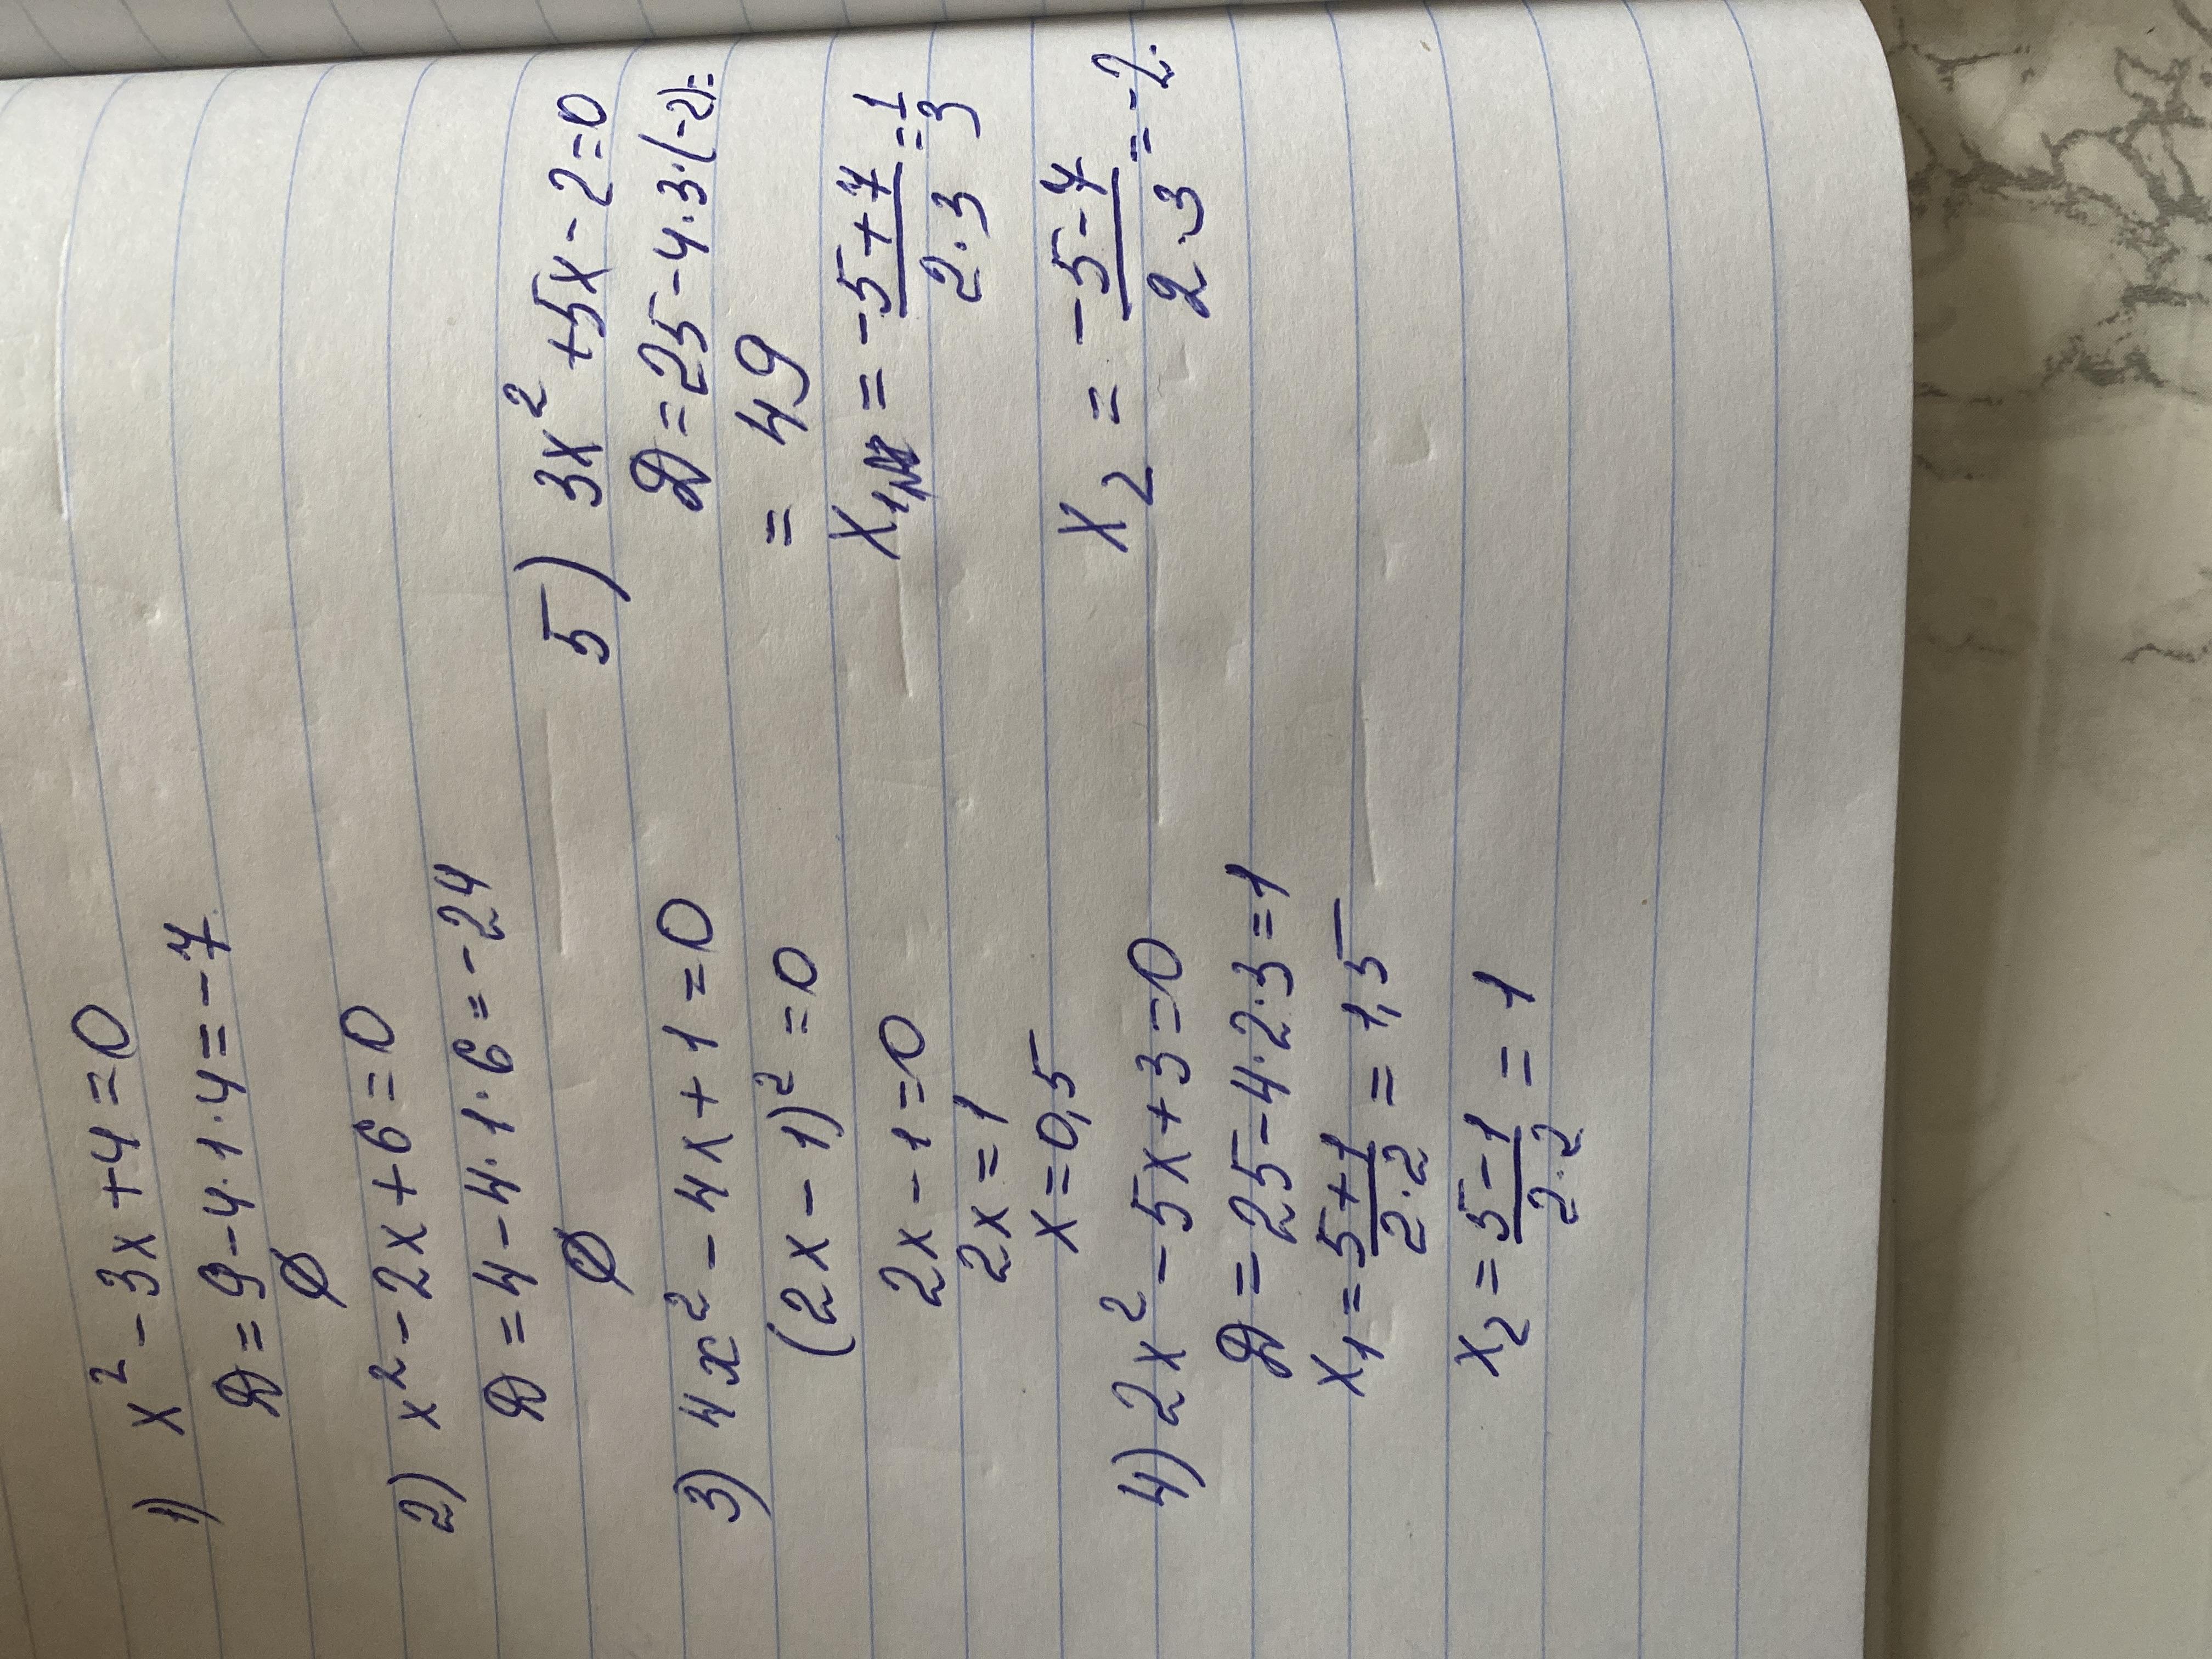 1) x² - 3x + 4 = 0
D = 9 - 4·1·4 = -7
∅
2) x² - 2x + 6 = 0
D = 4 - 4·1·6 = -24
∅
3) 4x² - 4x + 1 = 0
(2x - 1)² = 0
2x - 1 = 0
2x = 1
x = 0,5
4) 2x² - 5x + 3 = 0
D = 25 - 4·2·3 = 1
x₁ = (5+1)/(2·2) = 1,5
x₂ = (5-1)/(2·2) = 1
5) 3x² + 5x - 2 = 0
D = 25 - 4·3·(-2) =
= 49
x₁ = (-5+7)/(2·3) = 1/3
x₂ = (-5-7)/(2·3) = -2.